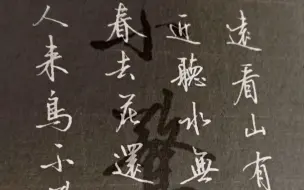 遠看山有
近聽水無
春去花還
人来鳥不